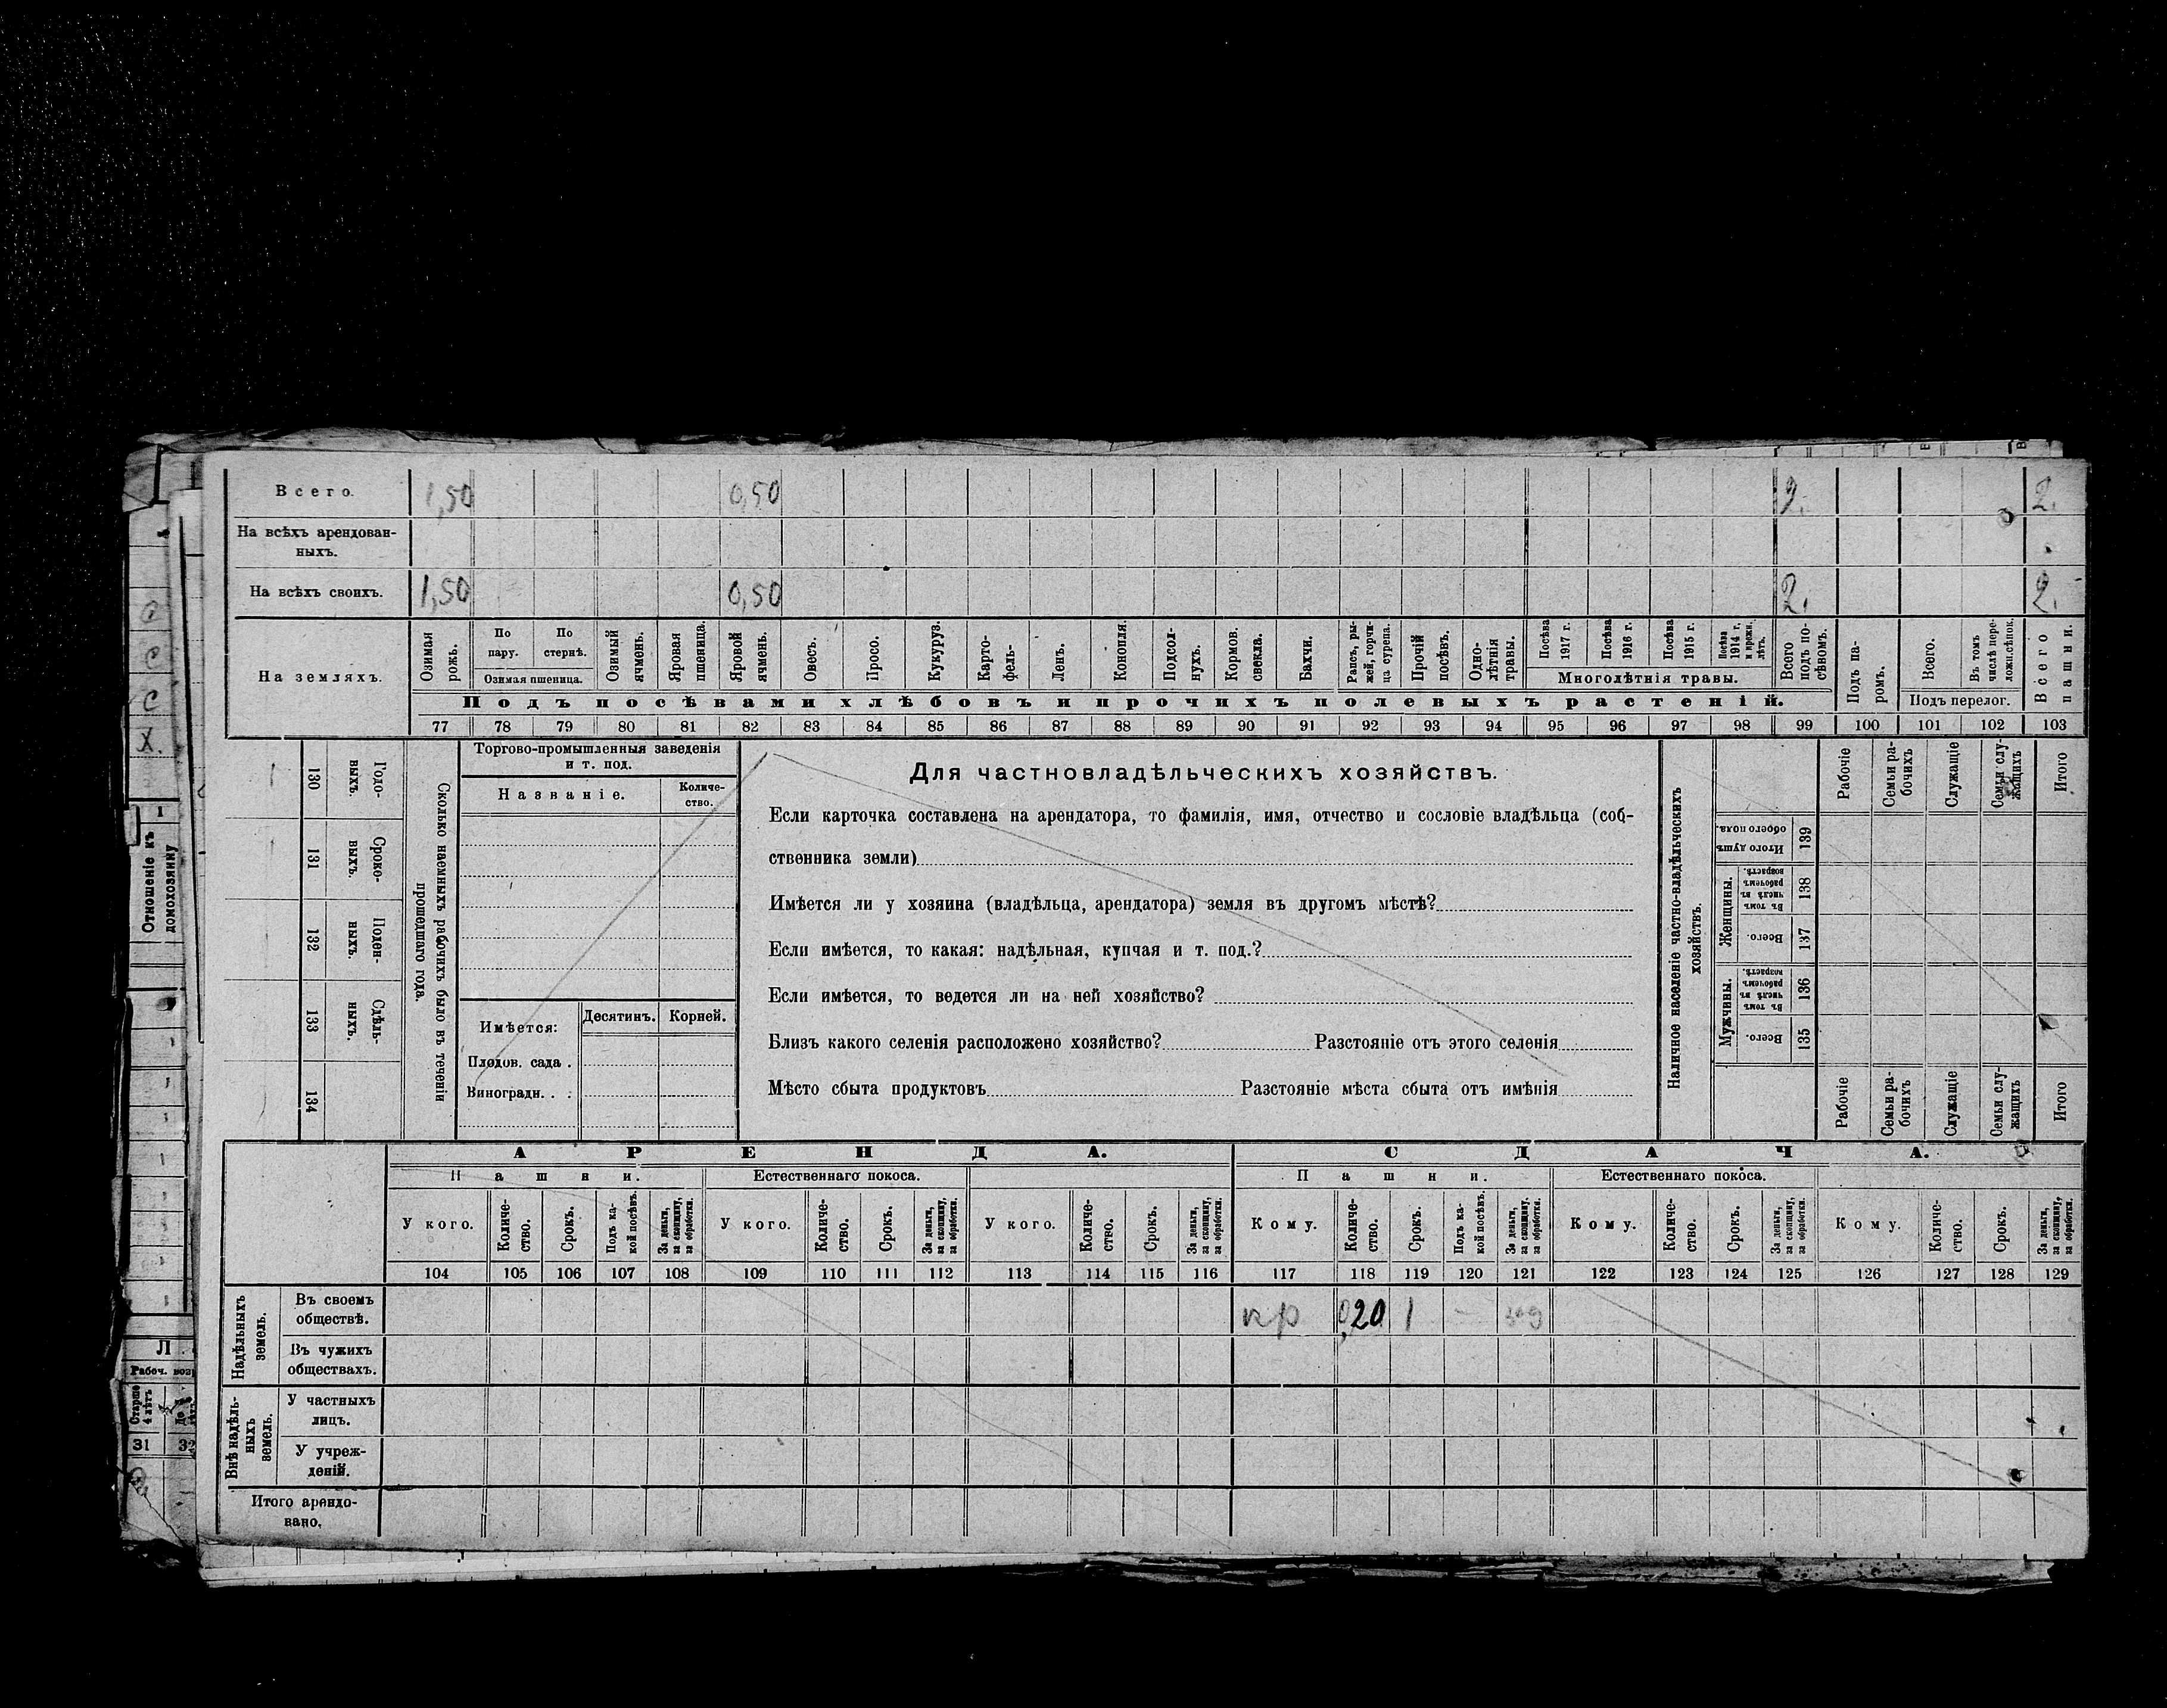 Всего. 1,50 0,50 2. 2.
На всѣхъ арендован-
ныхъ.
На всѣхъ своихъ. 1,50 0,50 2. 2.
На земляхъ.
Озимая рожь.
По пару.
По стернѣ.
Озимая пшеница.
Озимый ячмень.
Яровая пшеница.
Яровой ячмень.
Овесъ.
Просо.
Кукуруз.
Карто-
фель-
Ленъ.
Конопля.
Подсол-
нухъ.
Кормов. свекла.
Бахчи.
Рапсъ, ры-
жей, горчи-
ца сурепа.
Прочій посѣвъ.
Одно-
лѣтнія травы.
Посѣва 1917 г.
Посѣва 1916 г.
Посѣва 1915 г.
Посѣва 1914 г. и прежн. лѣтъ.
Многолѣтнія травы.
Всего подъ по-
сѣвомъ.
Подъ па-
ромъ.
Всего.
Въ томъ числѣ пере-
ложн.сѣнок.
Подъ перелог.
Всего пашни.
Подъ посѣвами хлѣбовъ и прочихъ полевыхъ растеній.
77 78 79 80 81 82 83 84 85 86 87 88 89 90 91 92 93 94 95 96 97 98 99 100 101 102 103
130 Годо-
выхъ.
131 Сроко-
выхъ.
132 Поден-
ныхъ.
133 Сдѣль-
ныхъ.
134
Сколько наемныхъ рабочихъ было въ теченіи
прошедшаго года.
Торгово-промышленныя заведенія
и т. под.
Названіе.
Количе-
ство.
Имѣется:
Десятинъ. Корней.
Плодов. сада .
Виноградн. . .
Для частновладѣльческихъ хозяйствъ.
Если карточка составлена на арендатора, то фамилія, имя, отчество и сословіе владѣльца (соб-
ственника земли)
Имѣется ли у хозяина (владѣльца, арендатора) земля въ другомъ мѣстѣ?
Если имѣется, то какая: надѣльная, купчая и т. под.?
Если имѣется, то ведется ли на ней хозяйство?
Близъ какого селенія расположено хозяйство? Разстояніе отъ этого селенія
Мѣсто сбыта продуктовъ Разстояніе мѣста сбыта отъ имѣнія
Наличное населеніе частно-владѣльческихъ
хозяйствъ.
Рабочіе
Семьи ра-
бочихъ
Служащіе
Семьи слу-
жащихъ
Итого
Итого душъ
обоего пола.
139
Женщины.
Въ томъ числѣ въ рабочемъ возрастѣ.
138
Всего.
137
Мужчины.
Въ томъ числѣ въ рабочемъ возрастѣ.
136
Всего.
135
Рабочіе
Семьи ра-
бочихъ
Служащіе
Семьи слу-
жащихъ
Итого
АРЕНДА. СДАЧА.
Пашни. Естественнаго покоса. Пашни. Естественнаго покоса.
У кого.
Количе-
ство.
Срокъ.
Подъ ка-
кой посѣвъ.
За деньги, за скопщину, за обработки.
У кого.
Количе-
ство.
Срокъ.
За деньги, за скопщину, за обработки.
У кого.
Количе-
ство.
Срокъ.
За деньги, за скопщину, за обработки.
Кому.
Количе-
ство.
Срокъ.
Подъ ка-
кой посѣвъ.
За деньги, за скопщину. за обработки.
Кому.
Количе-
ство.
Срокъ.
За деньги, за скопщину, за обработки.
Кому.
Количе-
ство.
Срокъ.
За деньги, за скопщину, за обработки.
104 105 106 107 108 109 110 111 112 113 114 115 116 117 118 119 120 121 122 123 124 125 126 127 128 129
Надѣльныхъ
земель.
Въ своемъ
обществѣ.
кр 0,20 1 -
Въ чужихъ
обществахъ.
Внѣ надѣль-
ныхъ
земель.
У частныхъ
лицъ.
У учреж-
деній.
Итого арендо-
вано.
с
с
с
Х.
1
Отношеніе къ
домохозяину
Л
Рабоч. воз
Старше
31 32